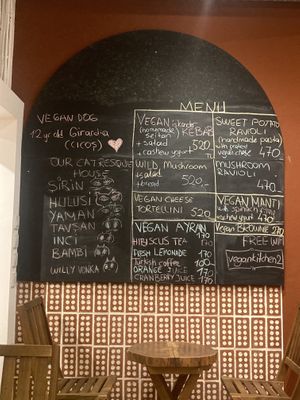 MENU
VEGAN DOG
12 yr old Girardia
(CICOŞ)
OUR CAT RESCUE
HOUSE
ŞİRİN
HULUSİ
YAMAN
TAVŞAN
İNCİ
BAMBİ
WILLY WONKA
VEGAN iskender
(homemade) KEBAB
seitan
+ salad
+ cashew yogurt 520
TL
WILD Mushroom
+ salad
+ bread 520
VEGAN CHEESE
TORTELLINI 520
VEGAN AYRAN
170
HIBISCUS TEA 170
FRESH LEMONADE 170
Turkish coffee 100
ORANGE JUICE 170
CRANBERRY JUICE 170
SWEET POTATO
RAVIOLI
(handmade pasta)
cashew yogurt 470
MUSHROOM
RAVIOLI
470
VEGAN MANTI
with spinach
cashew yogurt 470
VEGAN BROWNIE 270
FREE WIFI
vegankitchen2